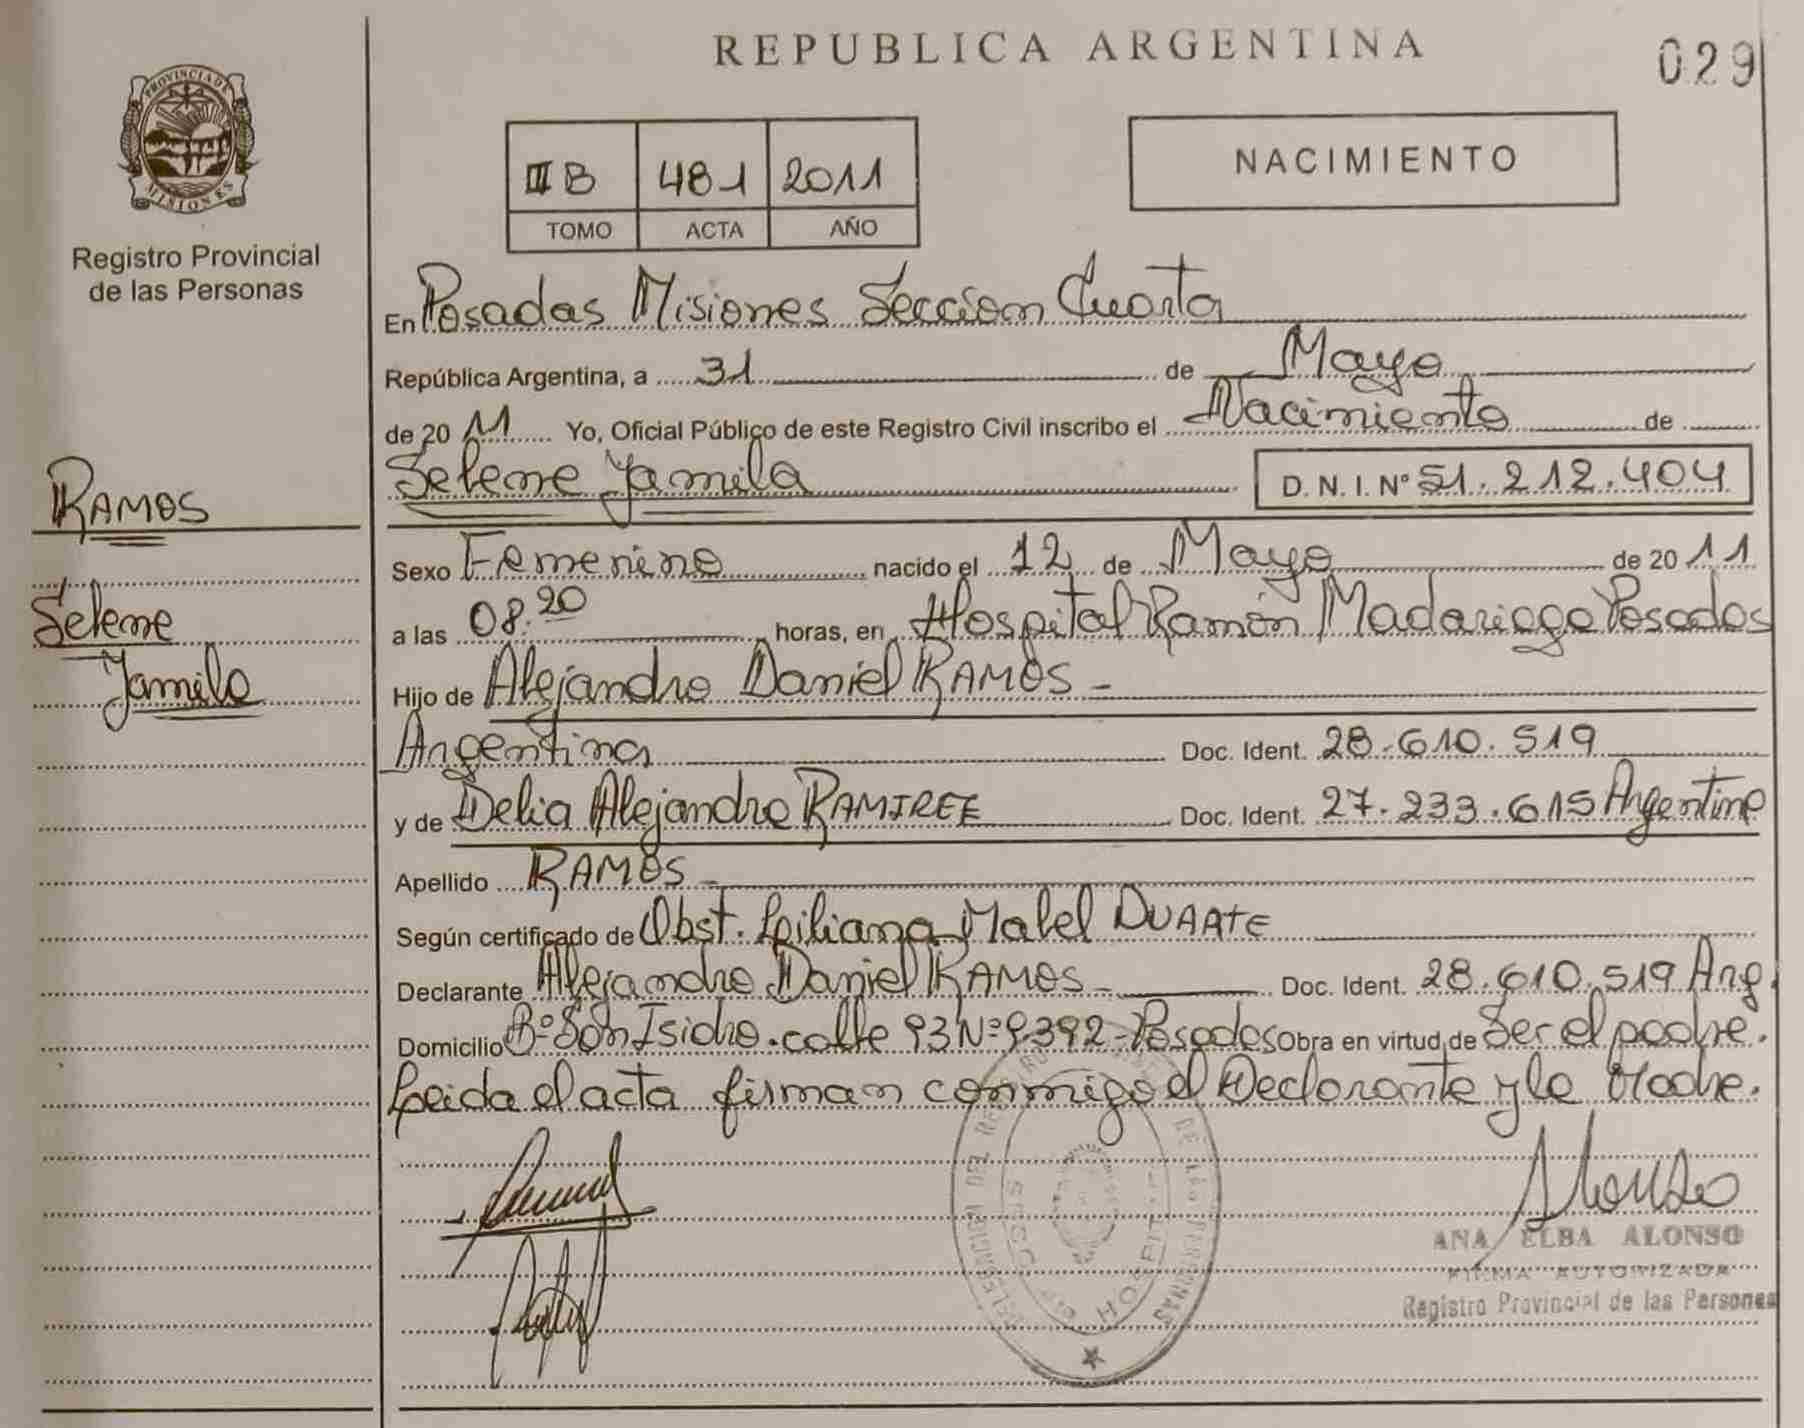 REPUBLICA ARGENTINA
029
PROVINCIA DE
MISIONES
Registro Provincial
de las Personas
III B 481 2011
TOMO ACTA AÑO
NACIMIENTO
En Posadas Misiones Seccion Cuarta
República Argentina, a 31 de Mayo
de 2011 Yo, Oficial Público de este Registro Civil inscribo el Nacimiento de
Selene Yamila D. N. I. N° 51.212.404
RAMOS
Selene
Yamila
Sexo Femenino nacido el 12 de Mayo de 2011
a las 08.20 horas, en Hospital Ramón Madariaga Posadas
Hijo de Alejandro Daniel RAMOS -
Argentina Doc. Ident. 28.610.519
y de Delia Alejandra RAMIREZ Doc. Ident. 27.233.615 Argentina
Apellido RAMOS -
Según certificado de Obst. Liliana Mabel DUARTE
Declarante Alejandro Daniel RAMOS - Doc. Ident. 28.610.519 Arg.
Domicilio B° San Isidro. calle 93 N° 9392 - Posadas Obra en virtud de Ser el padre.
Leida el acta firman conmigo el Declarante y la Madre.
Alonso
ANA ELBA ALONSO
FIRMA AUTORIZADA
Registro Provincial de las Personas